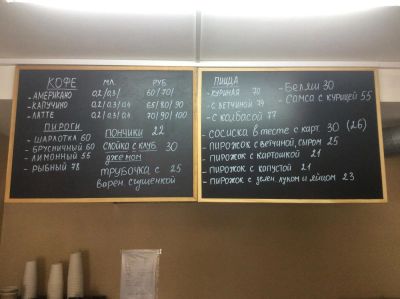 КОФЕ МЛ. РУБ.
- АМЕРИКАНО 0,2/0,3/ 60/70/
- КАПУЧИНО 0,2/0,3/0,4 65/80/90
- ЛАТТЕ 0,2/0,3/0,4 70/90/100
ПИРОГИ
- ШАРЛОТКА 60
- БРУСНИЧНЫЙ 60
- ЛИМОННЫЙ 55
- РЫБНЫЙ 78
ПОНЧИКИ 22
СЛОЙКА С КЛУБ. 30
ДЖЕМОМ
ТРУБОЧКА С 25
ВАРЕН. СГУЩЕНКОЙ
ПИЦЦА
- КУРИНАЯ 70
- С ВЕТЧИНОЙ 74
- С КОЛБАСОЙ 77
- БЕЛЯШ 30
- САМСА С КУРИЦЕЙ 55
- СОСИСКА В ТЕСТЕ С КАРТ. 30 (26)
- ПИРОЖОК С ВЕТЧИНОЙ, СЫРОМ 25
- ПИРОЖОК С КАРТОШКОЙ 21
- ПИРОЖОК С КАПУСТОЙ 21
- ПИРОЖОК С ЗЕЛЕН. ЛУКОМ И ЯЙЦОМ 23